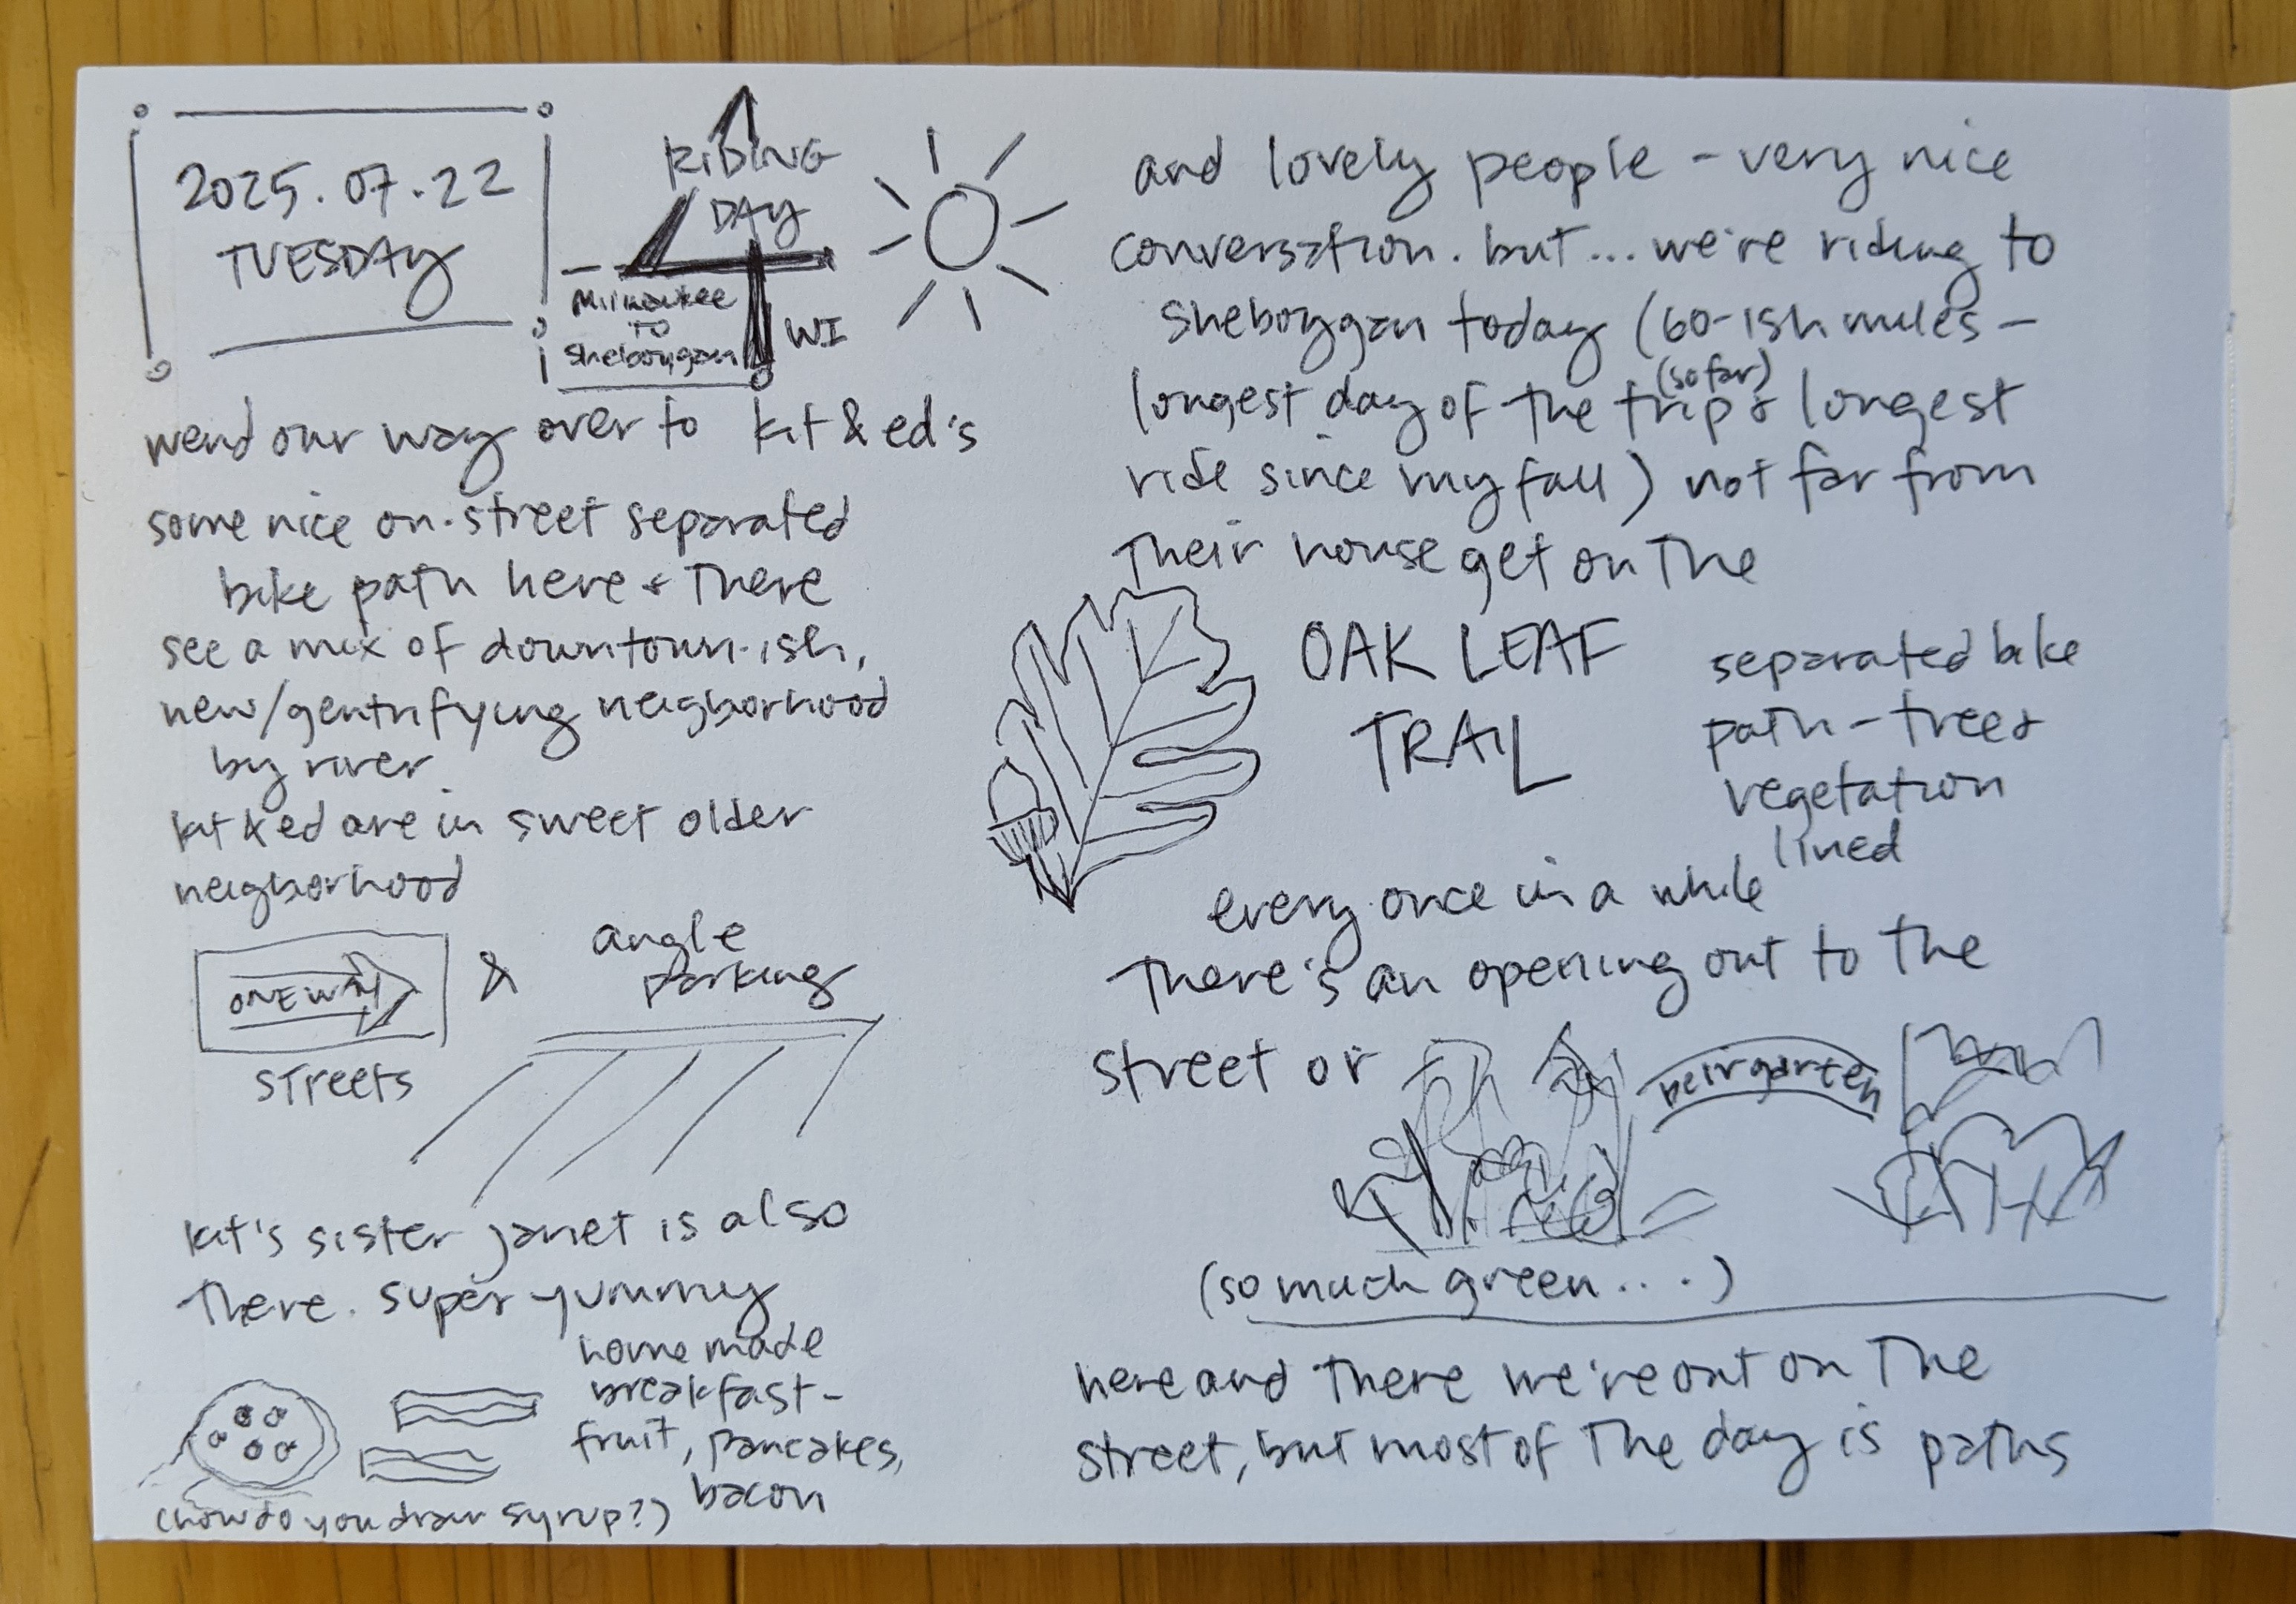 2025.07.22
TUESDAY
RIDING
DAY
Milwaukee
TO
Sheboygan
WI
wend our way over to kit & ed's
some nice on-street separated
bike path here & there
see a mix of downtown-ish,
new/gentrifying neighborhood
by river
kit & ed are in sweet older
neighborhood
ONE WAY
&
angle
parking
streets
kit's sister janet is also
there. super yummy
home made
breakfast-
fruit, pancakes,
bacon
(how do you draw syrup?)
and lovely people - very nice
conversation. but... we're riding to
sheboygan today (60-ish miles -
longest day of the trip (so far) & longest
ride since my fall) not far from
their house get on the
OAK LEAF
TRAIL
separated bike
path - tree &
vegetation
lined
every once in a while
there's an opening out to the
street or
beirgarten
(so much green....)
here and there we're out on the
street, but most of the day is paths